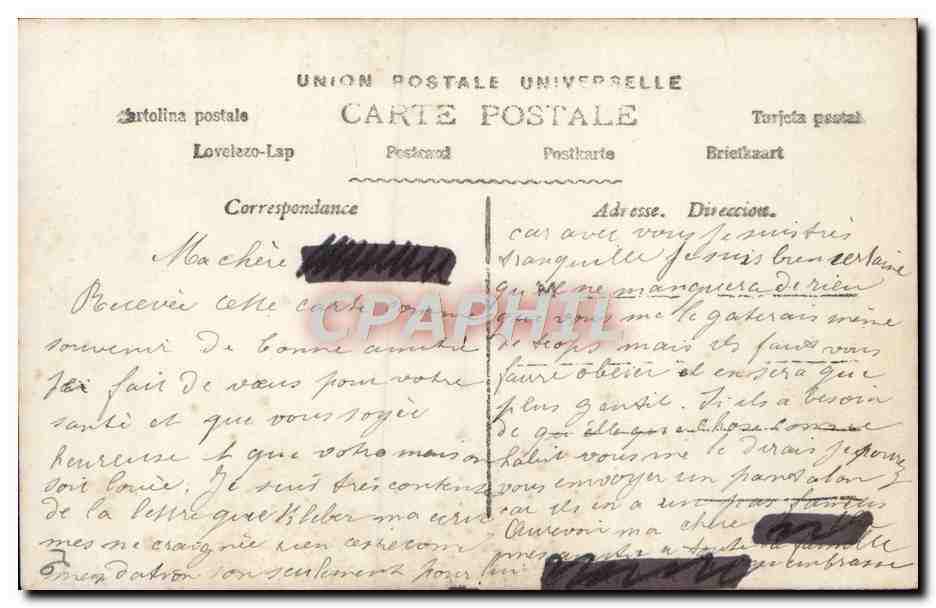 UNION POSTALE UNIVERSELLE
CARTE POSTALE
Cartolina postale
Tarjeta postal
Levelezo-Lap
Postcard
Postkarte
Briefkaart
Correspondance
Adresse. Direccion.
Ma chère
Recevée cette carte comme
souvenir de bonne amitié
Jei fait de vœus pour votre
santé et que vous soyée
heureuse et que votre maison
soit louée. Je suis très content
de la lettre que Kleber ma ecrit
mes ne craignée rien ces recom
mendation son seulement pour lui
car avec vous je suis très
tranquille je suis bien certaine
qu'il ne manquera de rien
que vous me le gaterais même
de trops mais ils faut vous
faire obéier et en sera que
plus gentil. Si ils a besoin
de quelleque chose comme
habit vous me le dirais je pourez
vous envoyer un pantalon
car ils en a un pas fameus
Aurevoir ma chere
mes amitié a toute la famille
embrasse
CPAPHIL